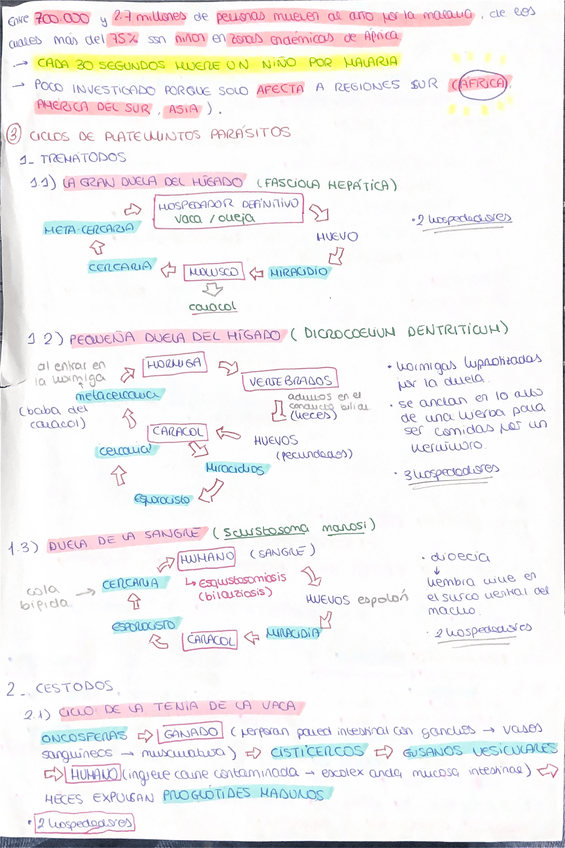 Entre 700.000 y 2.7 millones de personas mueren al año por la malaria, de los
cuales más del 75% son niños en zonas endémicas de África
→ CADA 30 SEGUNDOS MUERE UN NIÑO POR MALARIA
→ POCO INVESTIGADO PORQUE SOLO AFECTA A REGIONES SUR (ÁFRICA,
AMÉRICA DEL SUR, ASIA).
③ CICLOS DE PLATELMINTOS PARÁSITOS
1_ TREMÁTODOS
1.1) LA GRAN DUELA DEL HÍGADO (FASCIOLA HEPÁTICA)
HOSPEDADOR DEFINITIVO
vaca / oveja
META CERCARIA
HUEVO
• 2 hospedadores
CERCARIA
MOLUSCO
MIRACIDIO
caracol
1.2) PEQUEÑA DUELA DEL HÍGADO (DICROCOELIUM DENTRITICUM)
al entrar en
la hormiga
HORMIGA
VERTEBRADOS
metacercaria
(baba del
caracol)
adultos en el
conducto biliar
(heces)
CARACOL
HUEVOS
(fecundados)
cercaria
Miracidios
esporocisto
• hormigas
por la duela.
• se anclan en lo alto
de una hierba para
ser comidas por un
herbívoro.
• 3 hospedadores
1.3) DUELA DE LA SANGRE (Schistosoma manosi)
HUMANO (SANGRE)
cola
bífida
CERCARIA
↳ esquistosomiosis
(bilarziosis)
HUEVOS espolón
ESPOROCISTO
CARACOL
MIRACIDIA
• dioecia
↓
hembra vive en
el surco ventral del
macho.
• 2 hospedadores
2_ CESTODOS
2.1) CICLO DE LA TENIA DE LA VACA
ONCOSFERAS ⇨ GANADO (perforan pared intestinal con ganchos → vasos
sanguíneos → musculatura) ⇨ CISTICERCOS ⇨ GUSANOS VESICULARES
⇨ HUMANO (ingiere carne contaminada → escolex ancla mucosa intestinal) ⇨
HECES EXPULSAN PROGLÓTIDES MADUROS
• 2 hospedadores